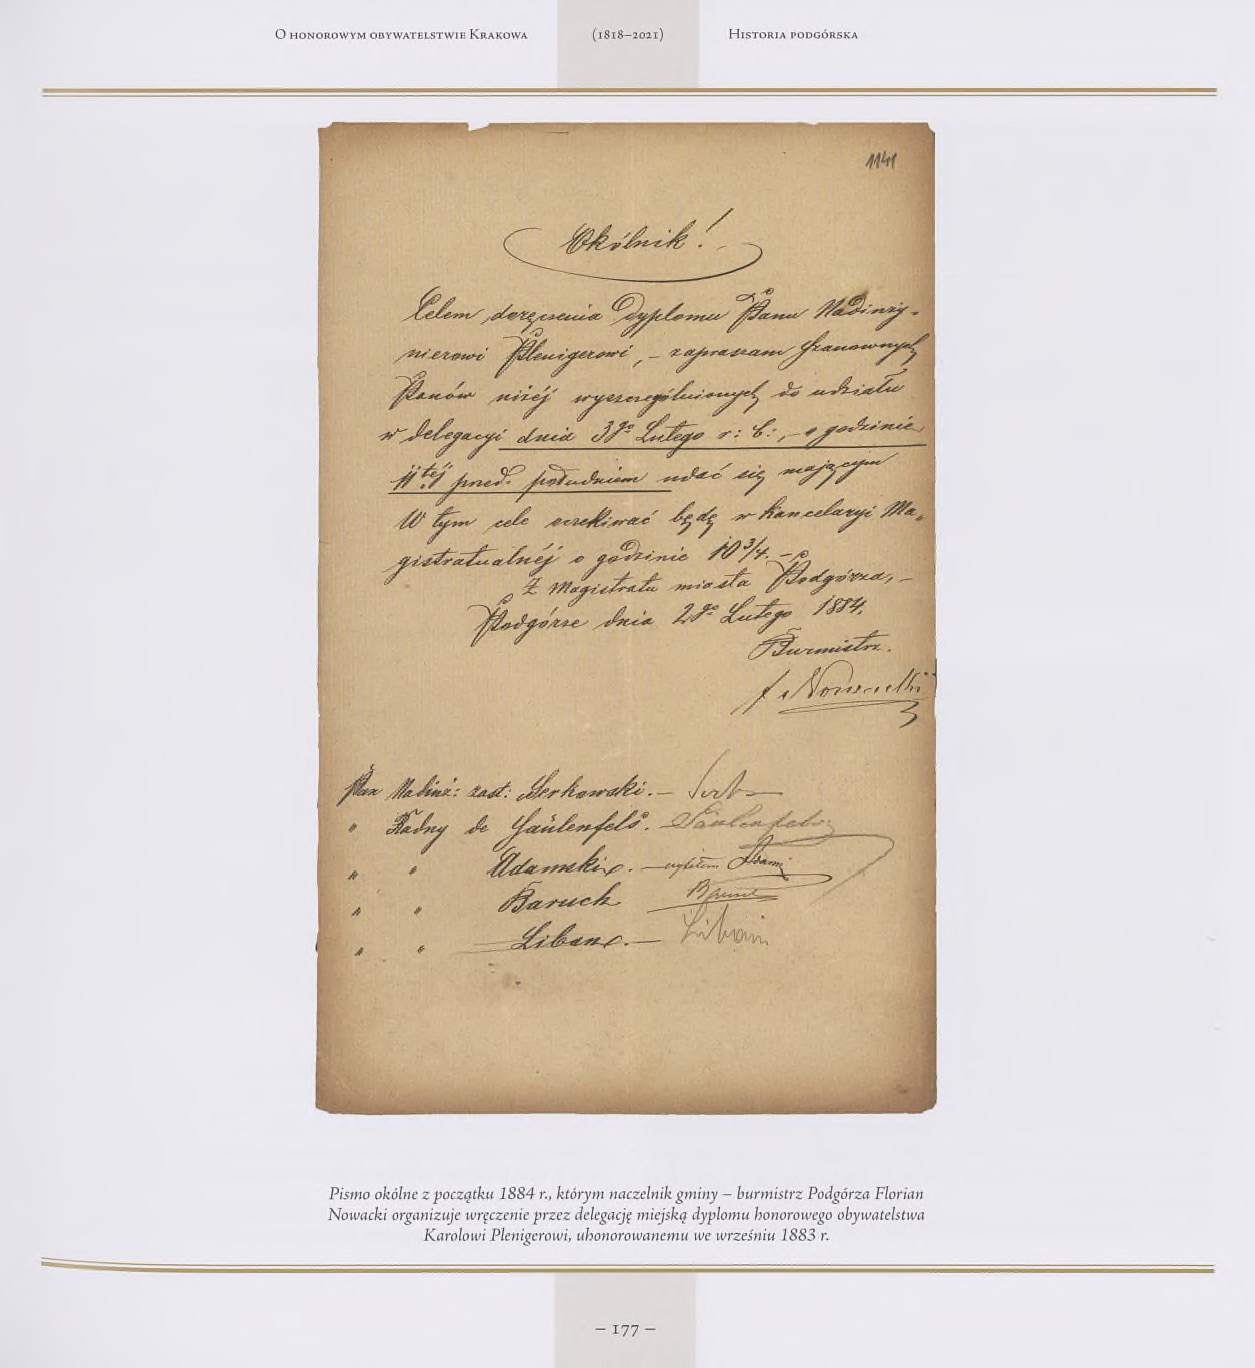 O honorowym obywatelstwie Krakowa (1818–2021) Historia podgórska
1141
Okólnik!
Celem doręczenia Dyplomu Panu Nadinży-
nierowi Plenigerowi, – zapraszam Szanownych
Panów niżéj wyszczególnionych do udziału
w delegacyi dnia 3go Lutego r: b:, – o godzinie
11téj przed południem udać się mającéj
W tym cele oczekiwać będę w kancelaryi Ma-
gistratualnéj o godzinie 10 3/4. –
Z Magistratu miasta Podgórza, –
Podgórze dnia 2go Lutego 1884.
Burmistrz.
F Nowacki
Pan Nadinż: zast: Serkowski. –
" Radny de Gaülenfels.
" " Adamski. –
" " Baruch
" " Liban. – Liban
Pismo okólne z początku 1884 r., którym naczelnik gminy – burmistrz Podgórza Florian
Nowacki organizuje wręczenie przez delegację miejską dyplomu honorowego obywatelstwa
Karolowi Plenigerowi, uhonorowanemu we wrześniu 1883 r.
– 177 –